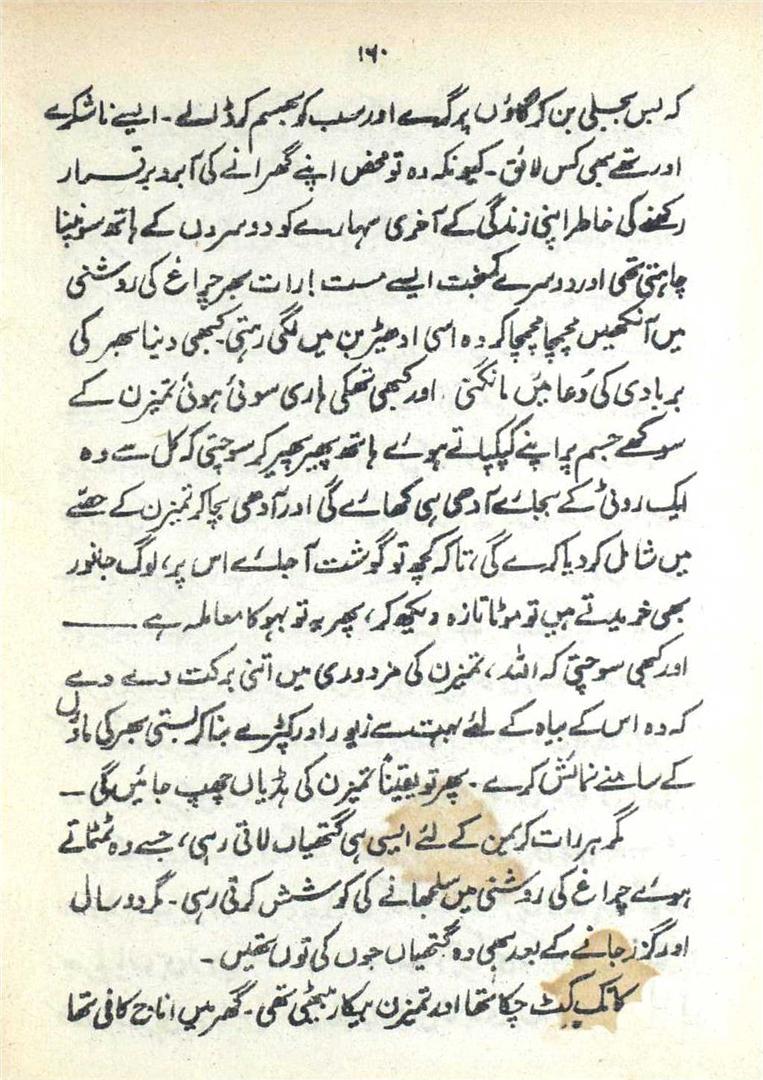 ۱۶۰
کہ بس بجلی بن کر گاؤں پر گرے اور سب کو بھسم کر ڈالے ۔ ایسے ناشکرے
اور تھے بھی کس لائق ۔ کیونکہ وہ تو محض اپنے گھرانے کی آبرو برقرار
رکھنے کی خاطر اپنی زندگی کے آخری سہارے کو دوسروں کے ہاتھ سونپنا
چاہتی تھی اور دوسرے کمبخت ایسے مست ! رات بھر چراغ کی روشنی
میں آنکھیں مچمچا مچمچا کر وہ اسی ادھیڑ بن میں لگی رہتی کبھی دنیا بھر کی
بربادی کی دُعائیں مانگتی ۔ اور کبھی تھکی ہاری سوئی ہوئی تمیزن کے
سوکھے جسم پر اپنے کپکپاتے ہوئے ہاتھ پھیر پھیر کر سوچتی کہ کل سے وہ
ایک روٹی کے بجائے آدھی ہی کھائے گی اور آدھی بچا کر تمیزن کے حصّے
میں شامل کر دیا کرے گی، تاکہ کچھ تو گوشت آجائے اس پر، لوگ جانور
بھی خریدتے ہیں تو موٹا تازہ دیکھ کر، پھر یہ تو بہو کا معاملہ ہے ـــــــ
اور کبھی سوچتی کہ اللہ، تمیزن کی مزدوری میں اتنی برکت دے دے
کہ وہ اس کے بیاہ کے لئے بہت سے زیور اور کپڑے بنا کر بستی بھر کی ماؤں
کے سامنے نمائش کرے ۔ پھر تو یقیناً تمیزن کی ہڈیاں چھپ جائیں گی ۔
مگر ہر رات کریمن کے لئے ایسی ہی گتھیاں لاتی رہی، جسے وہ ٹمٹماتے
ہوئے چراغ کی روشنی میں سلجھانے کی کوشش کرتی رہی ۔ مگر دو سال
اور گزر جانے کے بعد بھی وہ گتھیاں جوں کی توں تھیں ۔
کاتک کٹ چکا تھا اور تمیزن بیکار بیٹھی تھی ۔ گھر میں اناج کافی تھا